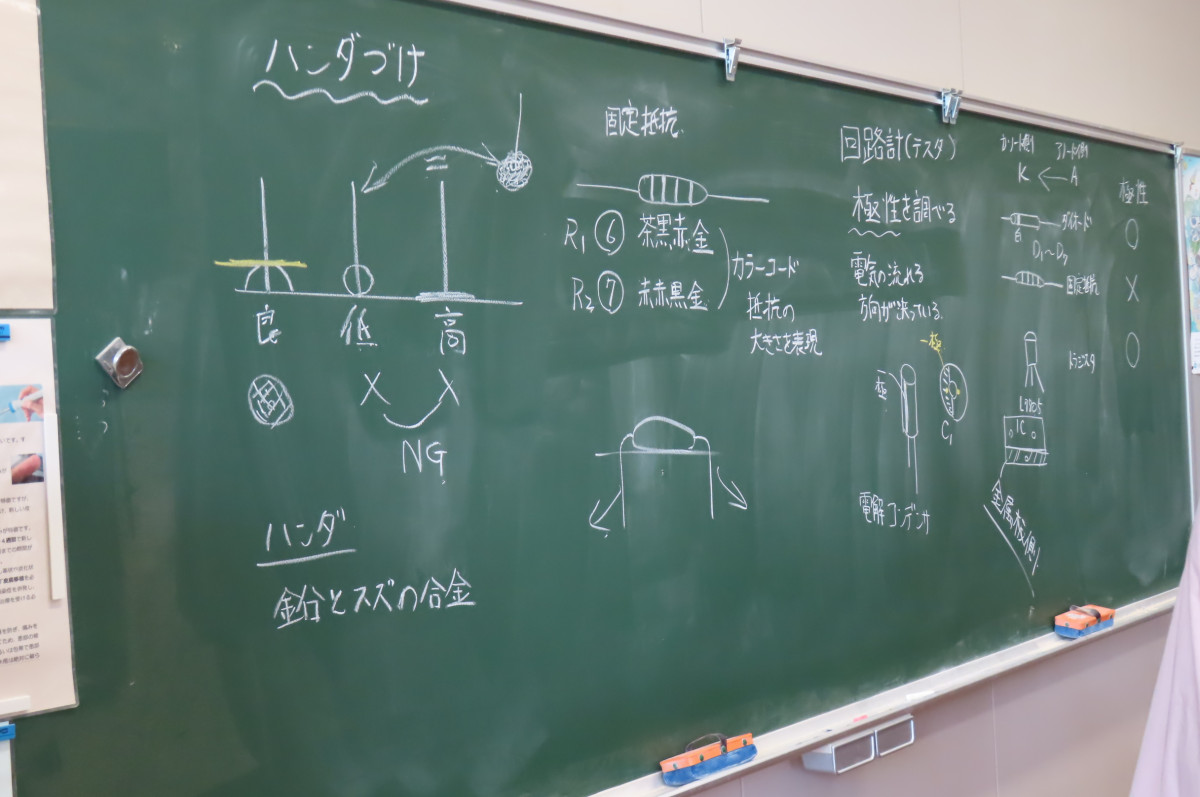 ハンダづけ
良
低
高
NG
ハンダ
鉛とスズの合金
固定抵抗
R1 ⑥ 茶黒赤金
R2 ⑦ 赤赤黒金
カラーコード
抵抗の
大きさを表現
回路計(テスタ)
極性を調べる
電気の流れる
方向が決っている。
-極
C1
電解コンデンサ
カソード側 アノード側
K ← A
極性
ダイオード
白
D1〜D7
○
固定抵抗
×
トランジスタ
○
L7805
IC
金属板側